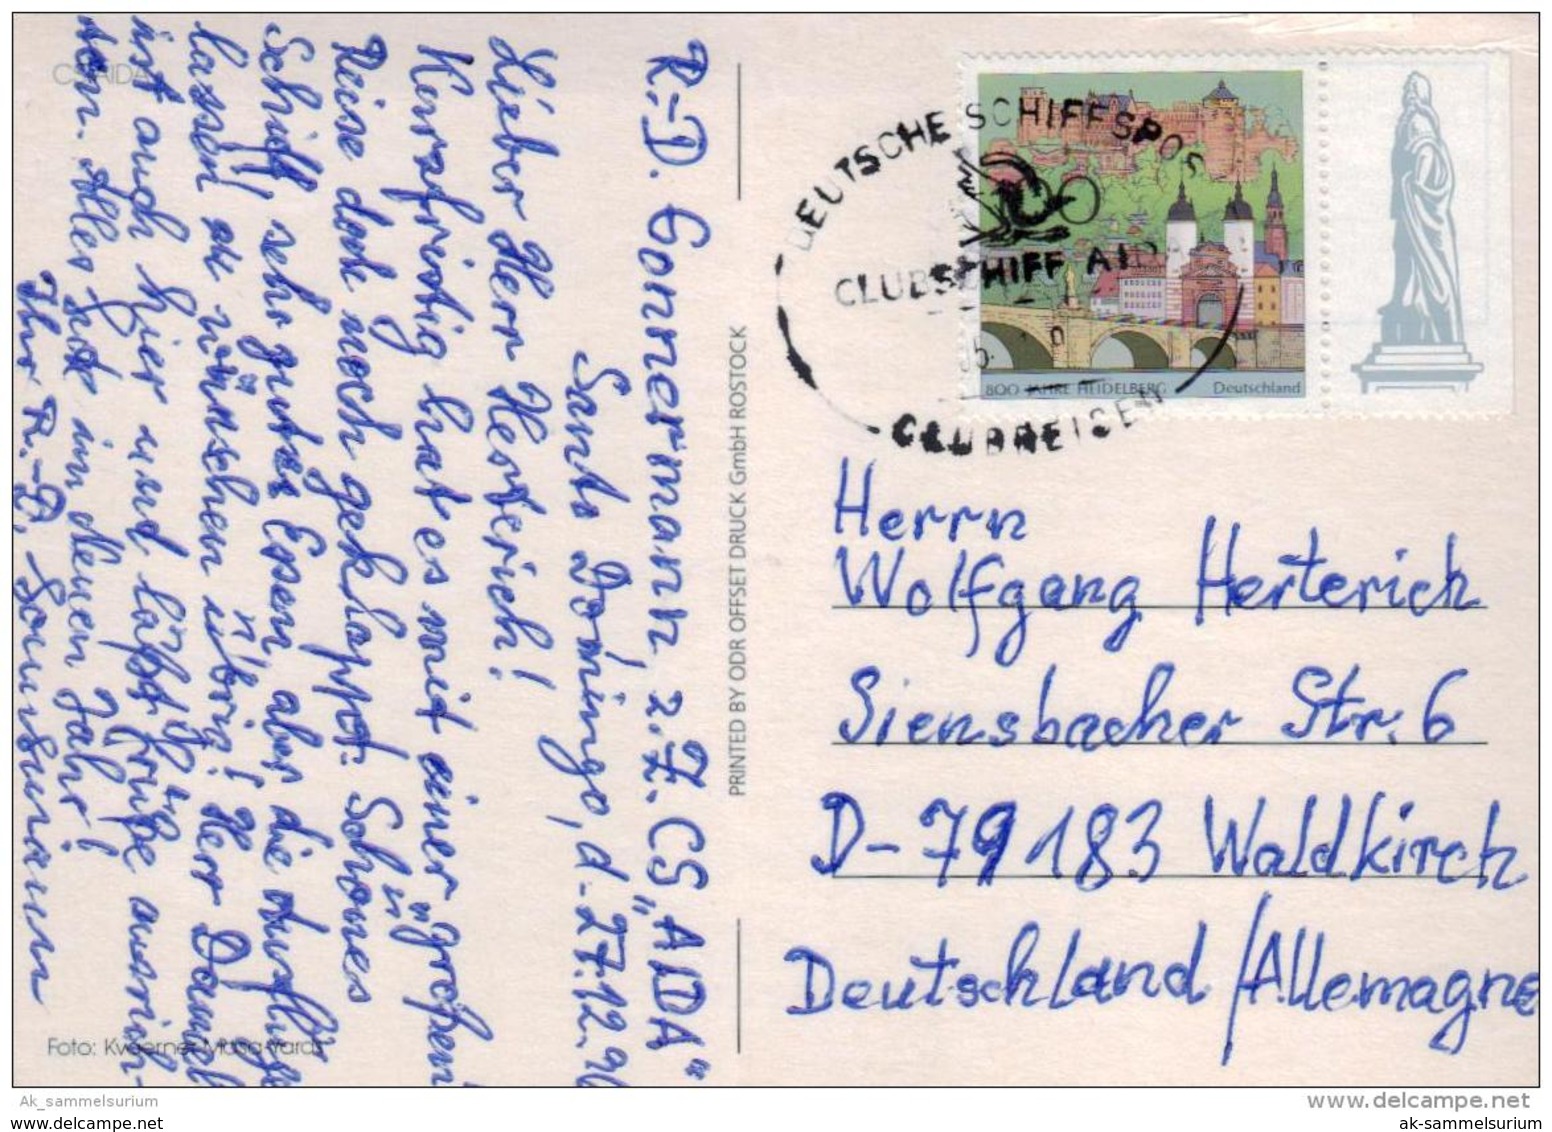 R.-D. Sonnermann z.Z. CS „AIDA"
Santo Domingo, d. 27.12.96
Lieber Herr Herterich!
Kurzfristig hat es mit einer großen
Reise doch noch geklappt. Schönes
Schiff, sehr gutes Essen, aber die
lassen zu wünschen übrig! Herr
ist auch hier und läßt Grüße ausrich-
ten. Alles Gute im Neuen Jahr!
Ihr R.-D. Sonnermann
CS AIDA
Foto: Kvaerner Masa-Yards
PRINTED BY ODR OFFSET DRUCK GmbH ROSTOCK
DEUTSCHE SCHIFFSPOST
CLUBSCHIFF AIDA
CLUBREISEN
800
800 JAHRE HEIDELBERG Deutschland
Herrn
Wolfgang Herterich
Siensbacher Str. 6
D-79183 Waldkirch
Deutschland/Allemagne
Ak_sammelsurium
www.delcampe.net
www.delcampe.net
ak-sammelsurium